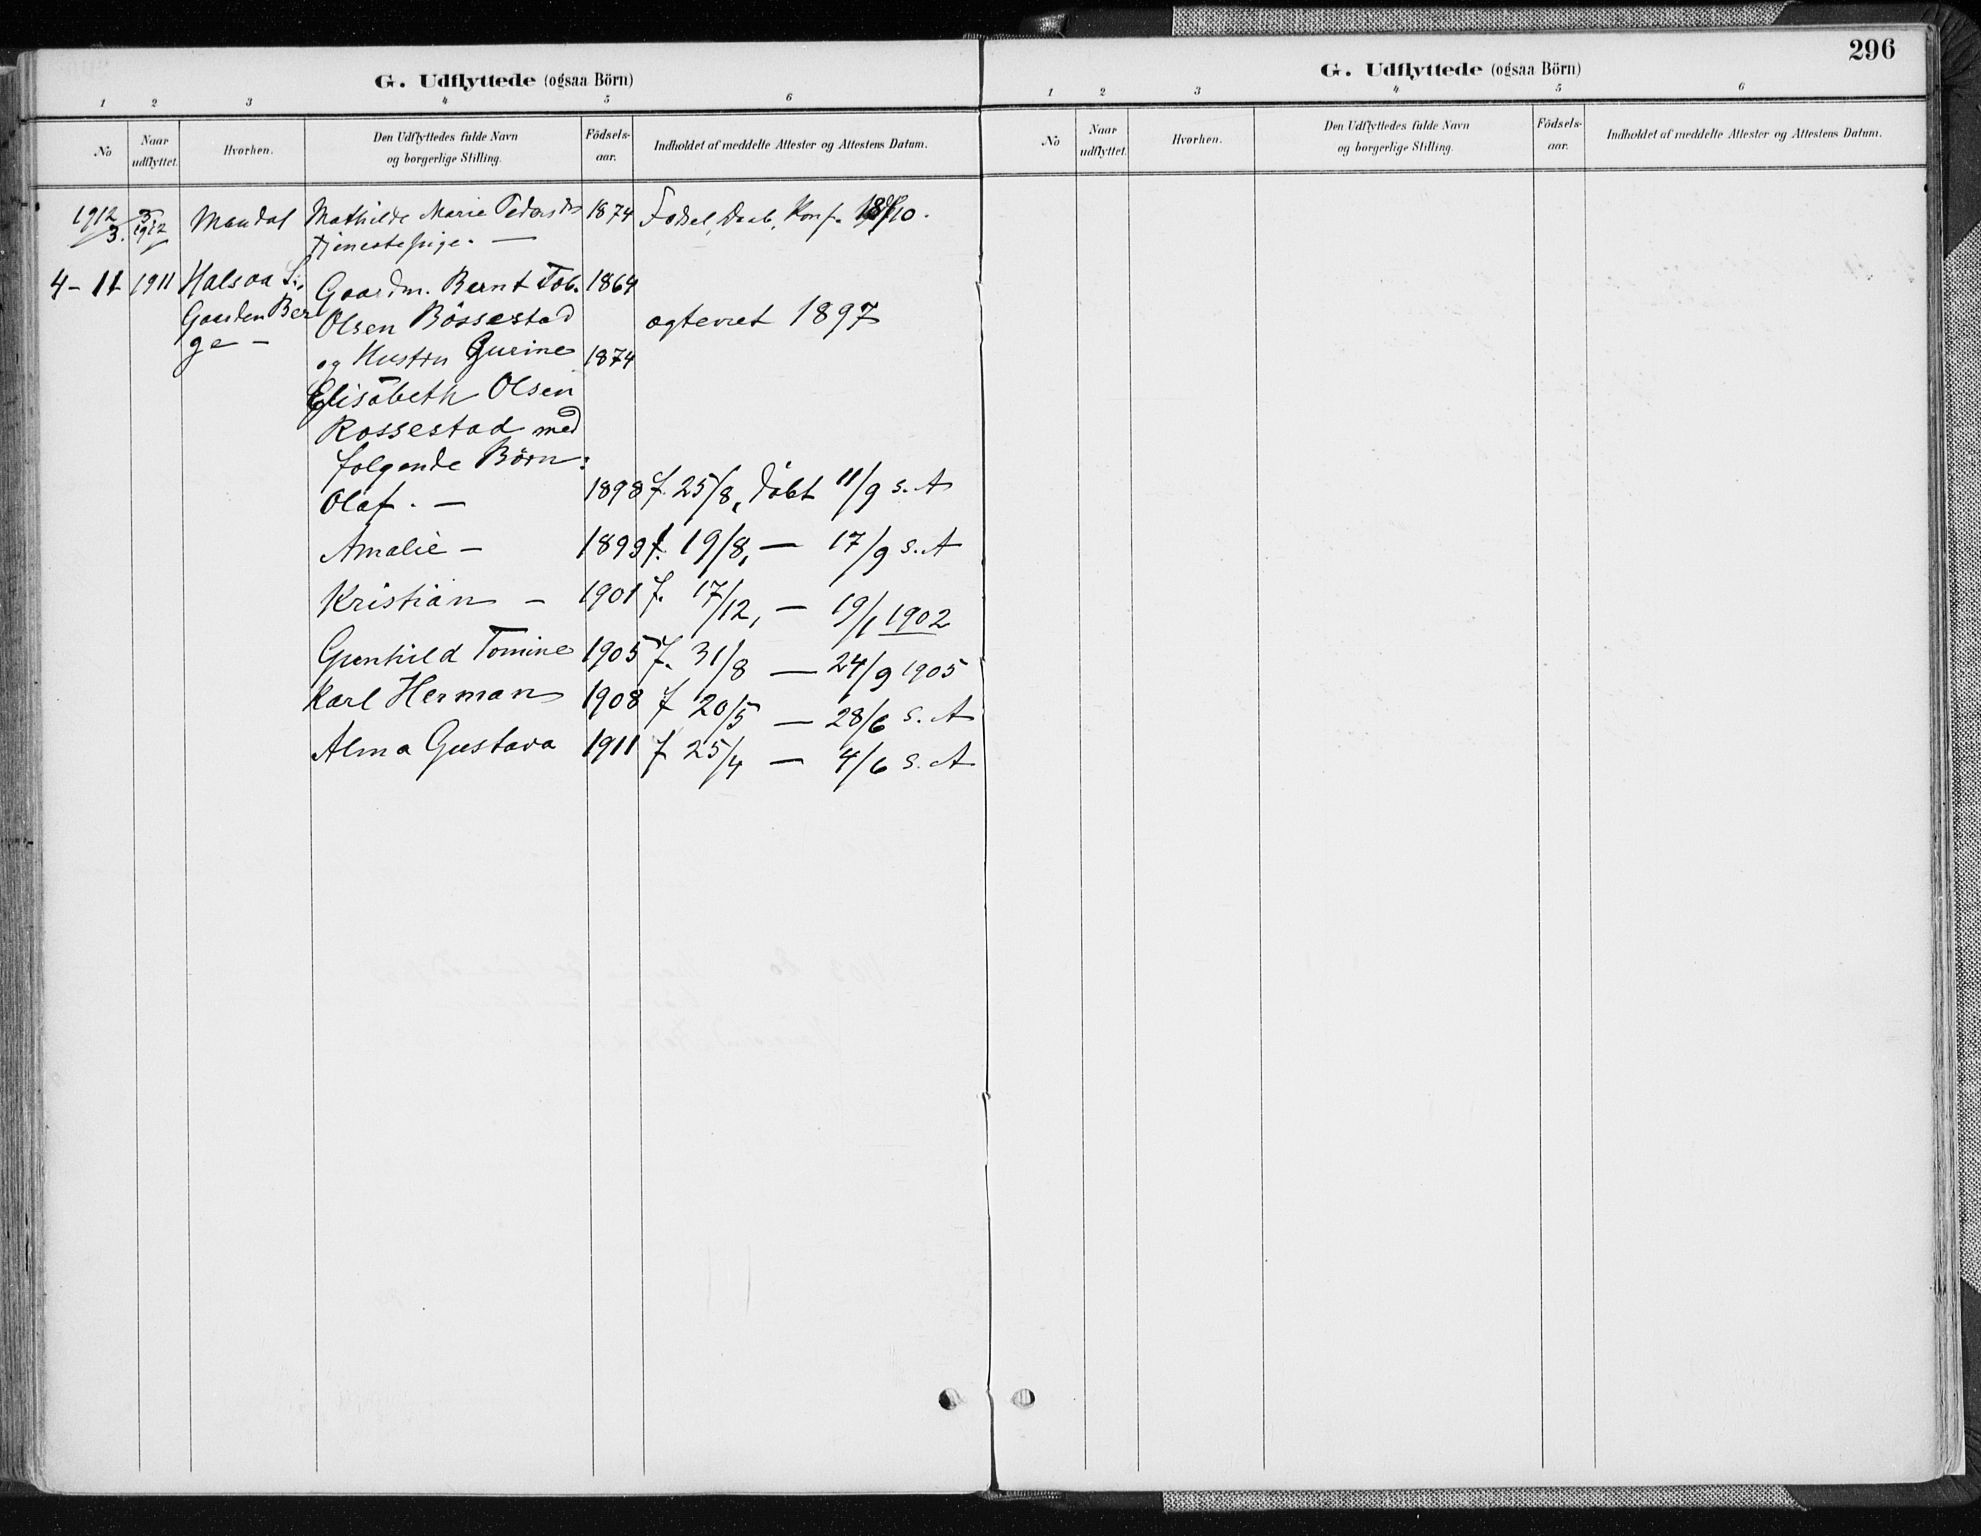 G. Udflyttede (ogsaa Börn)
1 2 3 4 5 6
No Naar udflyttet. Hvorhen. Den Udflyttedes fulde Navn og borgerlige Stilling. Födsels-aar. Indholdet af meddelte Attester og Attestens Datum.
1912/3. 3/1912 Mandal Mathilde Marie Pedersdtr 1874 Fodsel, Daab, Konf.
Tjenestepige. —
4 - 11 1911 Halsaa Gaardm. Bernt Tob. 1869
Gaarden Ber Olsen Rössestad ægteviet 1897
ge — og Hustru Gurine 1874
Elisabeth Olsen
Rossestad med
folgende Börn:
Olaf. — 1898 f. 25/8, döbt 11/9 s. A
Amalie — 1899 f. 19/8, — 17/9 s. A
Kristian — 1901 f. 17/12, — 19/1 1902
Gunhild Tomine 1905 f. 31/8 — 24/9 1905
Karl Herman 1908 f 20/5 — 28/6 s. A
Alma Gustava 1911 f 25/4 — 4/6 s. A
296
G. Udflyttede (ogsaa Börn)
1 2 3 4 5 6
No Naar udflyttet. Hvorhen. Den Udflyttedes fulde Navn og borgerlige Stilling. Födsels-aar. Indholdet af meddelte Attester og Attestens Datum.